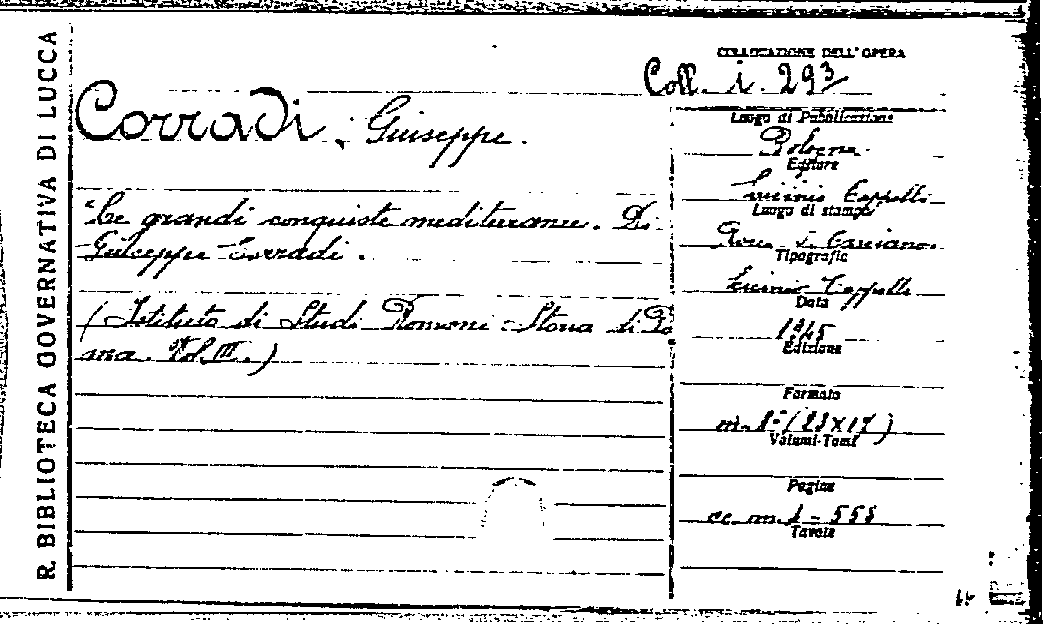 R. BIBLIOTECA GOVERNATIVA DI LUCCA
COLLOCAZIONE DELL'OPERA
Coll. i. 293
Corradi, Giuseppe.
"Le grandi conquiste mediterranee. Di
Giuseppe Corradi.
(Istituto di Studi Romani: Storia di Ro
ma. Vol. III.)
Luogo di Pubblicazione
Bologna
Editore
Licinio Cappelli
Luogo di stampa
Rocca S. Casciano
Tipografia
Licinio Cappelli
Data
1945
Edizione
Formato
in 8° (25x17)
Volumi-Tomi
Pagine
cc. in. 1 - 558
Tavole